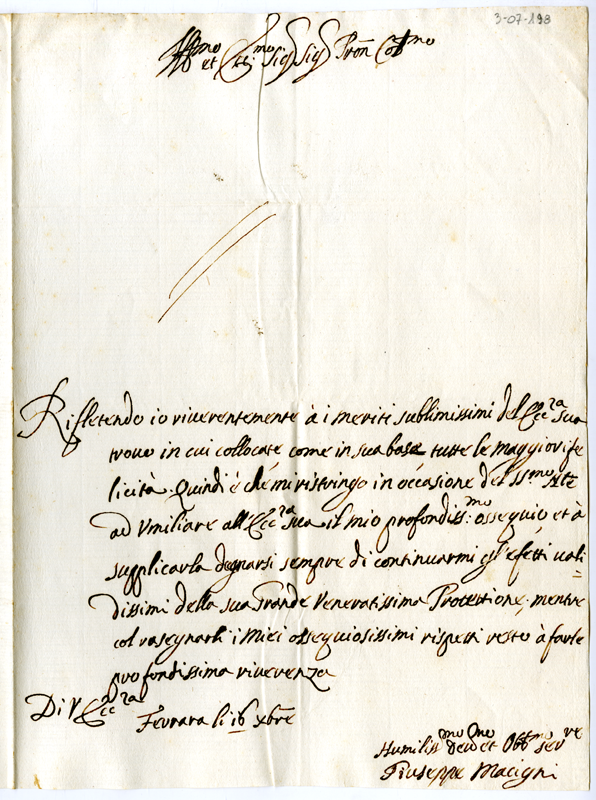 3-07-198
Ill.mo et Ecc.mo Sig. Sig. Pron Col.mo
Rifletendo io riverentemente à i meriti sublimissimi del Ecc.za sua
trovo in cui collocate come in sua base tutte le maggiori fe
licità. Quindi è che mi ristringo in occasione del SS.mo
ad Umiliare all Ecc.za sua il mio profondiss.mo ossequio et à
supplicarla degnarsi sempre di continuarmi gl'efetti vali
dissimi della sua Grande Veneratissima Protettione, mentre
col rasegnarli i Miei ossequiosissimi rispetti resto à farle
profondissima riverenza
Di V. Ecc.za
Ferrara li 16 xbre
Humiliss.mo Dev.mo et Obb.mo Ser.re
Giuseppe Macigni